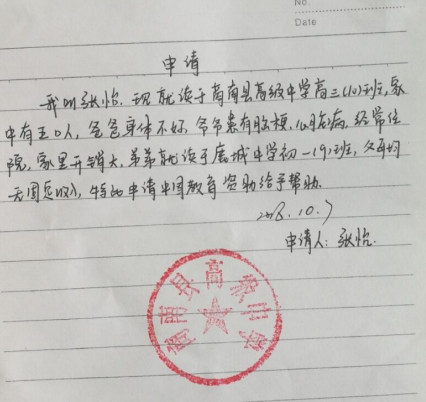 No.
Date
申请
我叫张怡，现就读于商南县高级中学高三(10)班，家
中有五口人，爸爸身体不好，爷爷患有脑梗、心脏病，经常住
院，家里开销大，弟弟就读于鹿城中学初一(9)班，父母均
无固定收入，特此申请中国教育资助给予帮助。
2018.10.7
申请人：张怡.
商南县高级中学